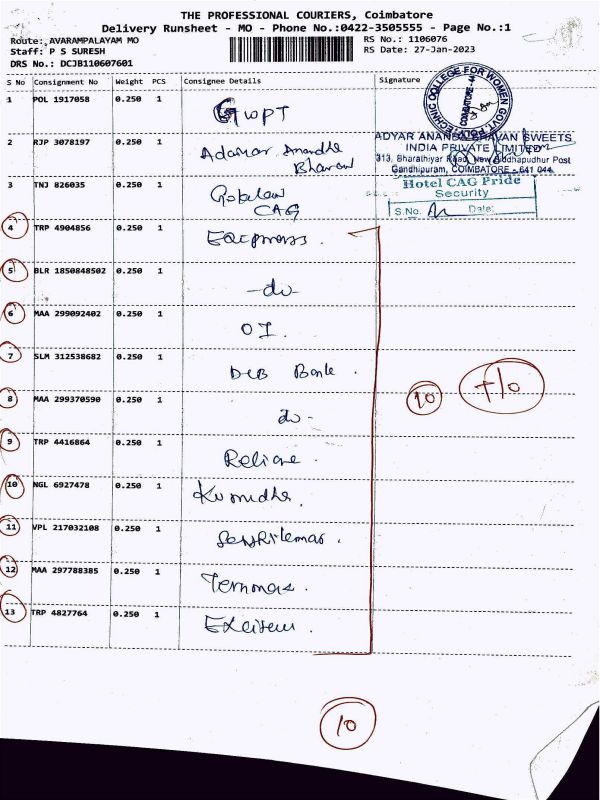 THE PROFESSIONAL COURIERS, Coimbatore
Delivery Runsheet - MO - Phone No.:0422-3505555 - Page No.:1
Route: AVARAMPALAYAM MO
RS No.: 1106076
Staff: P S SURESH
RS Date: 27-Jan-2023
DRS No.: DCJB110607601
S No Consignment No Weight PCS Consignee Details Signature
1 POL 1917058 0.250 1 GWPT
2 RJP 3078197 0.250 1 Adaiyar Anandha
Bhavan
3 TNJ 826035 0.250 1
CAG
4 TRP 4904856 0.250 1
5 BLR 1850848502 0.250 1 -do-
6 MAA 299092402 0.250 1 OI.
7 SLM 312538682 0.250 1 DCB Bank.
8 MAA 299370590 0.250 1 do-
9 TRP 4416864 0.250 1 Reliance.
10 NGL 6927478 0.250 1 Kumudha.
11 VPL 217032108 0.250 1
12 MAA 297788385 0.250 1
13 TRP 4827764 0.250 1
COLLEGE FOR WOMEN
COIMBATORE-44
ADYAR ANANDA BHAVAN SWEETS
INDIA PRIVATE LIMITED
313, Bharathiyar Road, New Siddhapudhur Post
Gandhipuram, COIMBATORE - 641 044.
Hotel CAG Pride
Security
S.No. Date:
10
10